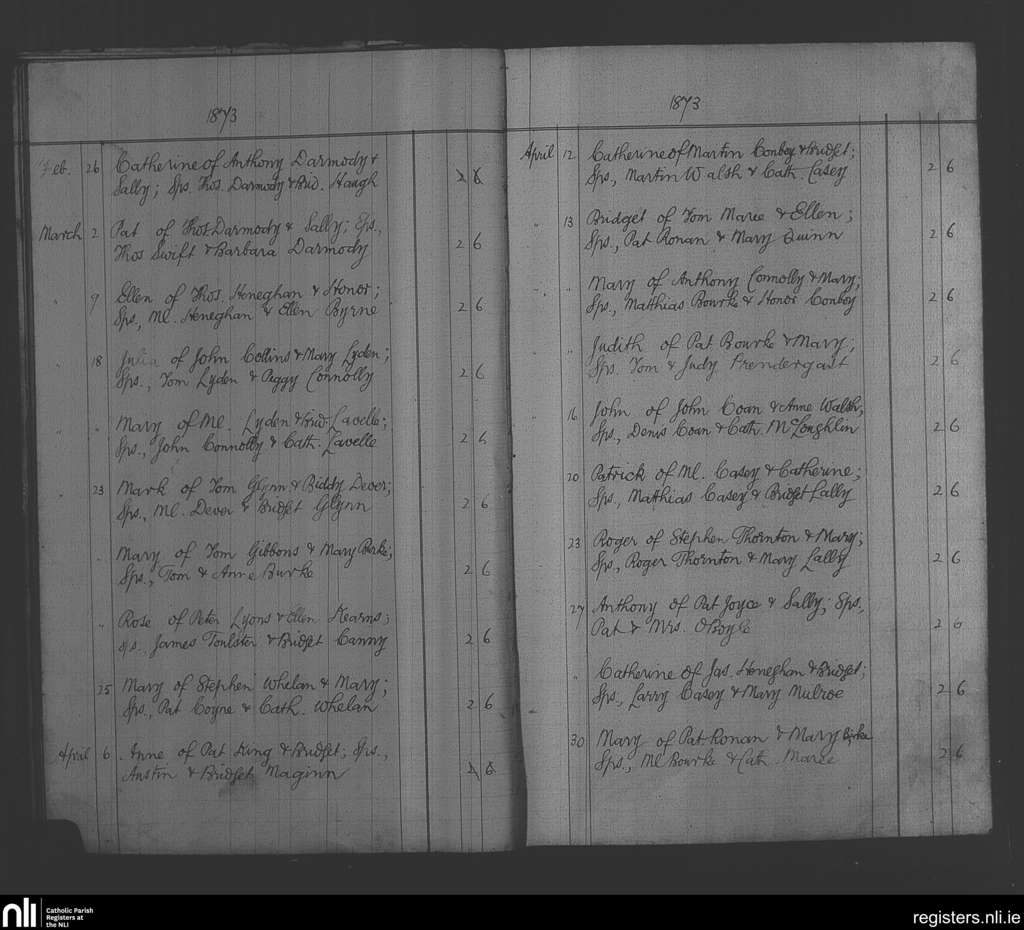 1873
Feb. 26 Catherine of Anthony Darmody &
Sally; Sps. Thos. Darmody & Brid. Haugh 2 6
March 2 Pat of Thos. Darmody & Sally; Sps.,
Thos Swift & Barbara Darmody 2 6
" 9 Ellen of Thos. Heneghan & Honor;
Sps., Ml. Heneghan & Ellen Byrne 2 6
" 18 Julia of John Collins & Mary Lyden;
Sps., Tom Lyden & Peggy Connolly 2 6
" " Mary of Ml. Lyden & Brid. Lavelle;
Sps., John Connolly & Cath. Lavelle 2 6
" 23 Mark of Tom Glynn & Biddy Dever;
Sps., Ml. Dever & Bridget Glynn 2 6
" Mary of Tom Gibbons & Mary Burke;
Sps., Tom & Anne Burke 2 6
" Rose of Peter Lyons & Ellen Kearns;
Sps., James & Bridget Canny 2 6
25 Mary of Stephen Whelan & Mary;
Sps., Pat Coyne & Cath. Whelan 2 6
April 6 Anne of Pat King & Bridget; Sps.,
Austin & Bridget Maginn 2 6
1873
April 12 Catherine of Martin Conboy & Bridget;
Sps., Martin Walsh & Cath. Casey 2 6
" 13 Bridget of Tom Maree & Ellen;
Sps., Pat Ronan & Mary Quinn 2 6
" " Mary of Anthony Connolly & Mary;
Sps., Matthias Bourke & Honor Conboy 2 6
" Judith of Pat Bourke & Mary;
Sps. Tom & Judy Prendergast 2 6
16 John of John Coan & Anne Walsh;
Sps., Denis Coan & Cath. McLoughlin 2 6
20 Patrick of Ml. Casey & Catherine;
Sps., Matthias Casey & Bridget Lally 2 6
23 Roger of Stephen Thornton & Mary;
Sps., Roger Thornton & Mary Lally 2 6
27 Anthony of Pat Joyce & Sally; Sps.,
Pat & Mrs. O'Boyle 2 6
" Catherine of Jas. Heneghan & Bridget;
Sps., Larry Casey & Mary Mulroe 2 6
30 Mary of Pat Ronan & Mary Burke
Sps., Ml. Bourke & Cath. Maree 2 6
nli
Catholic Parish
Registers at
the NLI
registers.nli.ie